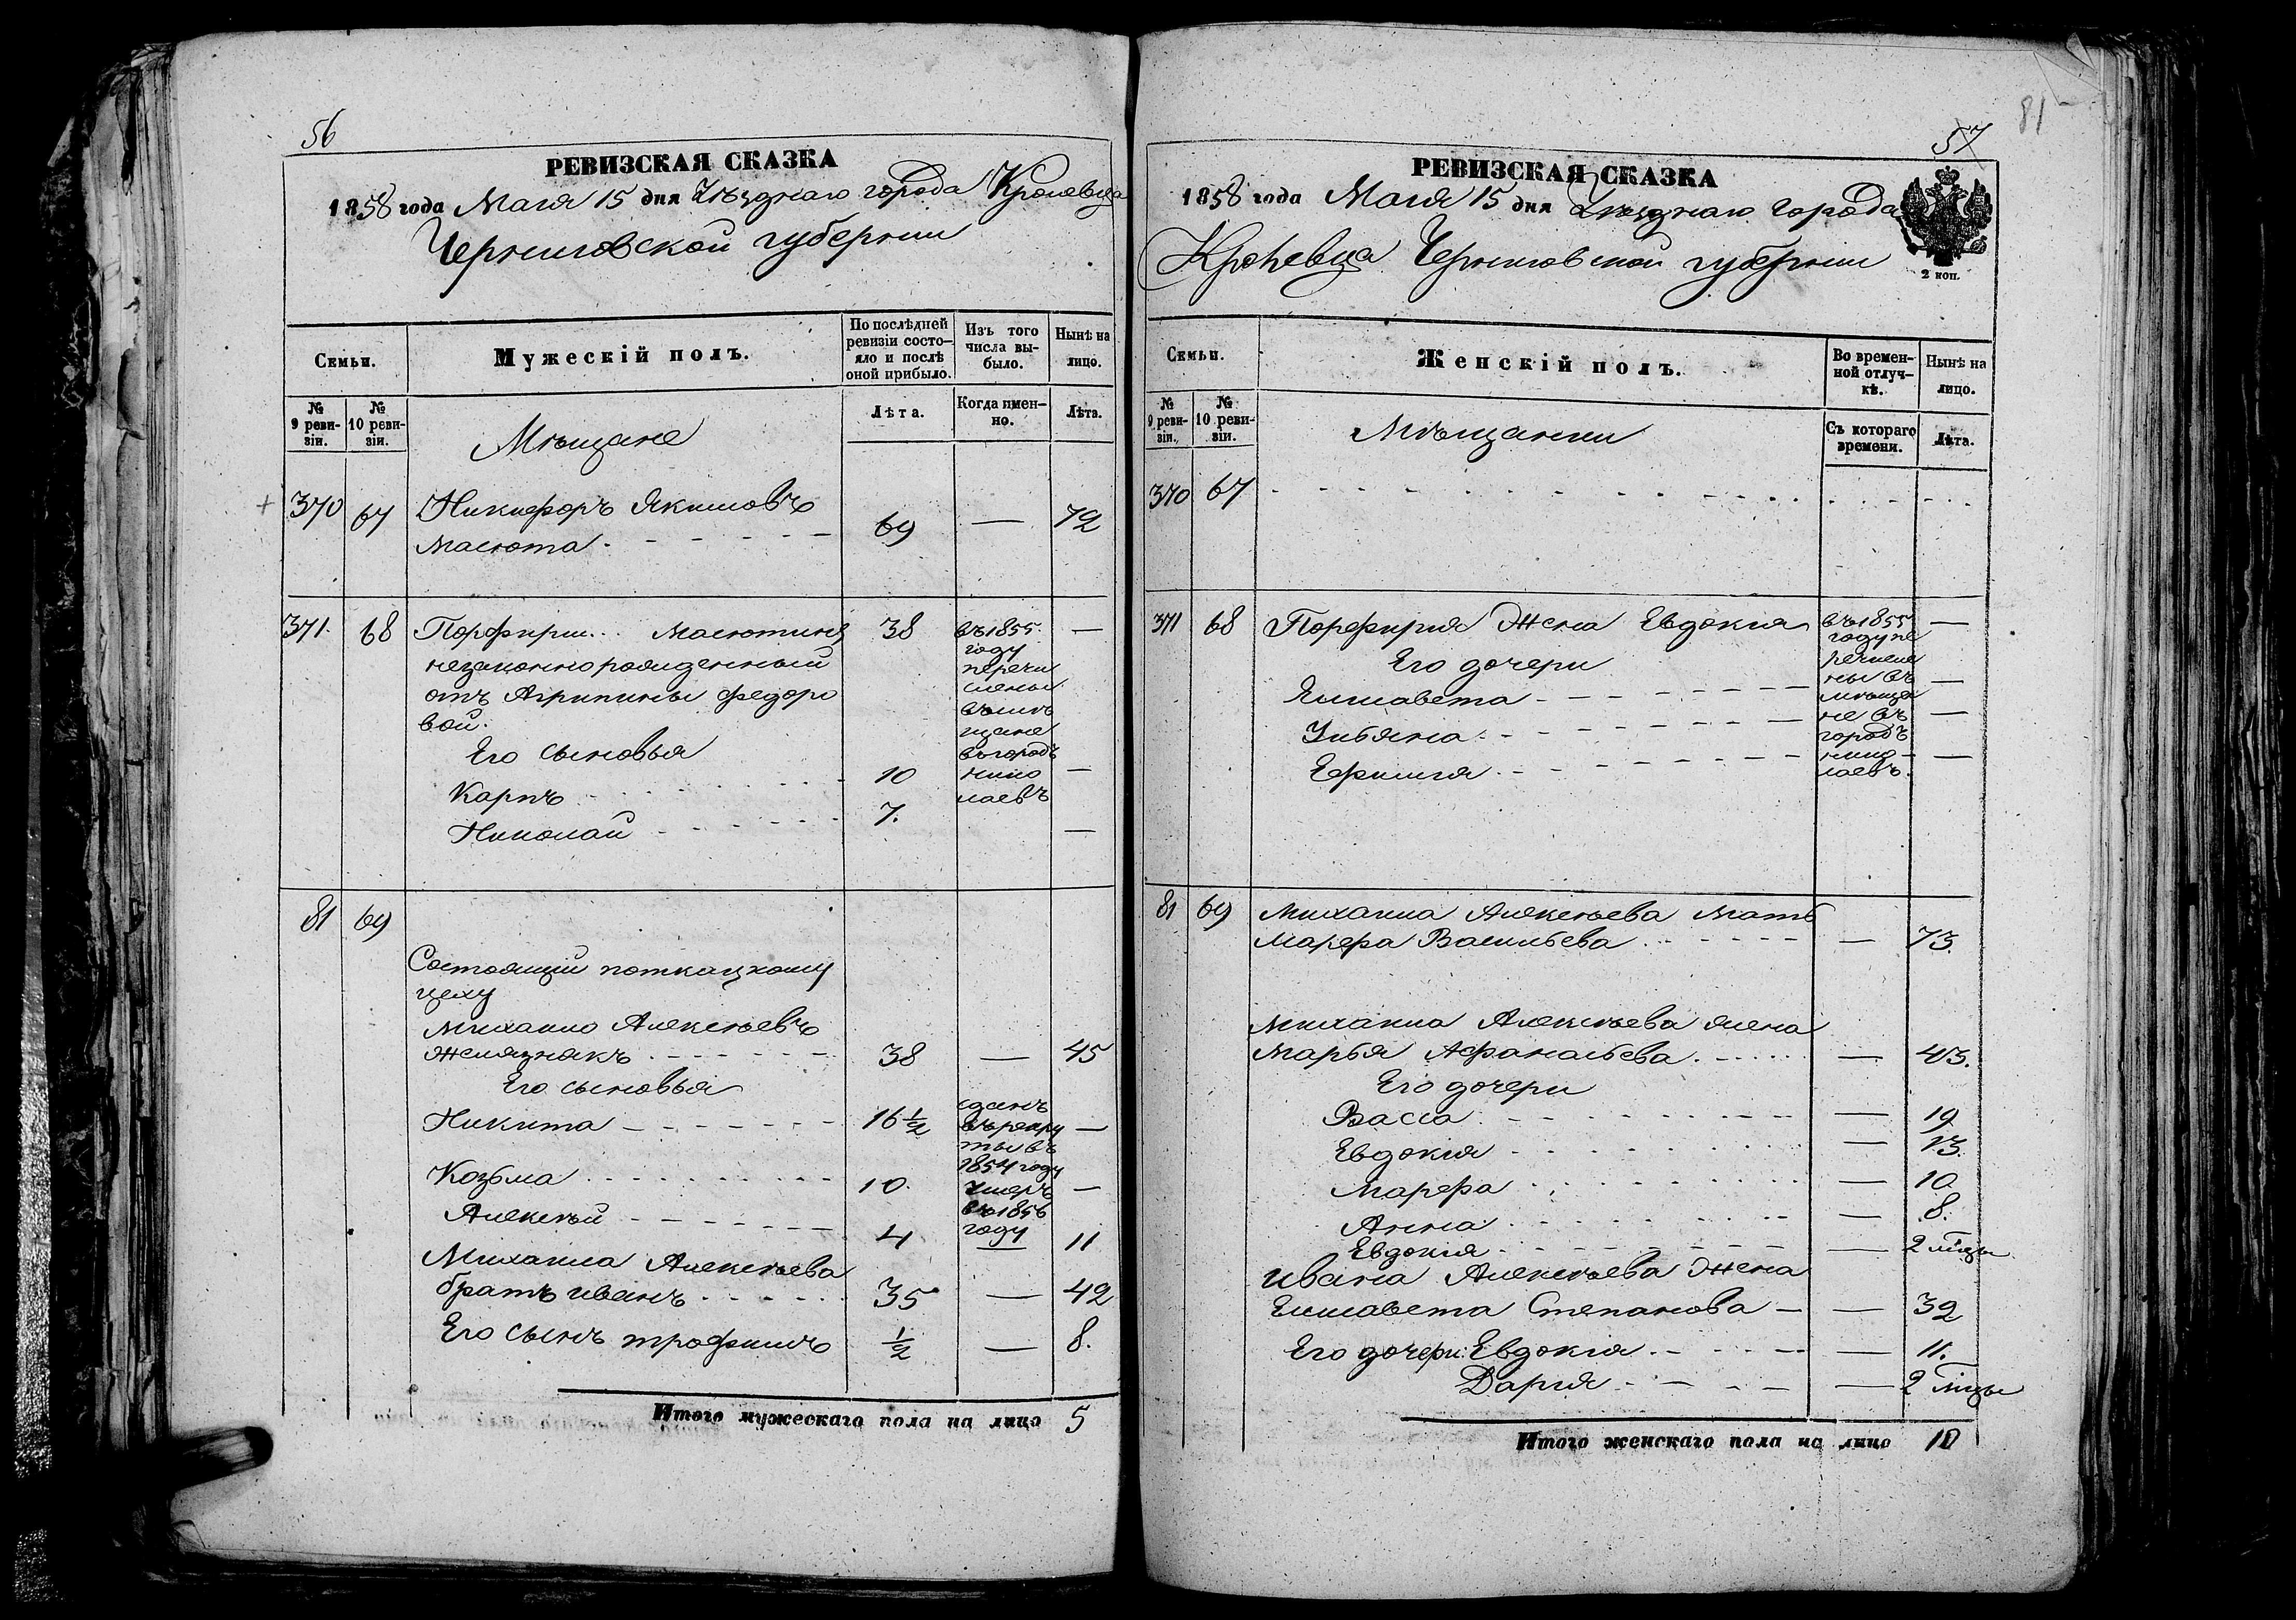 56
РЕВИЗСКАЯ СКАЗКА
1858 года Маия 15 дня Уѣзднаго города Кролевца
Черниговской губернии
Семьи.
Мужескій полъ.
По послѣдней
ревизіи состо-
яло и послѣ
оной прибыло.
Изъ того
числа вы-
было.
Нынѣ на
лицо.
№
9 реви-
зіи.
№
10 реви-
зіи.
Мѣщане
Лѣта.
Когда имен-
но.
Лѣта.
370 67 Никифоръ Якимовъ
Масюта - - - - - - 69 — 72
371. 68 Порфирии... Масютинъ 38 въ 1855 —
незаконнорожденный
отъ Агрипины Федоро
вой.
Его сыновья
Карпъ - - - - - - 10 —
Николай - - - - - - 7. —
году
перечи
сленны
въ мѣ
щане
въ городъ
нико
лаевъ
81 69
Состоящии поткацкому
цеху
Михаило Алексѣевъ
Желязнякъ - - - - - - 38 — 45
Его сыновья
Никита - - - - - - 16 ½ —
сданъ
въ рекру
ты въ
1854 году
Козьма - - - - - - 10. —
Умеръ
въ 1856
году
Алексѣй - - - - - - 4 — 11
Михаила Алексѣева
братъ иванъ - - - - - - 35 — 42
Его сынъ трофимъ ½ — 8.
Итого мужескаго пола на лицо 5
81
57
РЕВИЗСКАЯ СКАЗКА
1858 года Маия 15 дня Уѣзднаго города
Кролевца Черниговской губернии
2 коп.
Семьи.
Женскій полъ.
Во времен-
ной отлуч-
кѣ.
Нынѣ на
лицо.
№
9 реви-
зіи.
№
10 реви-
зіи.
Мѣщанки
Съ котораго
времени.
Лѣта.
370 67 - - - - - -
371 68 Порфирия Жена Евдокия —
Его дочери
Елисавета - - - - - - —
Ульяна - - - - - - —
Ефимия - - - - - - —
въ 1855
году пе
речисле
ны въ
мѣща
не въ
городъ
нико-
лаевъ.
81 69 Михаила Алексѣева Мать
Марфа Васильева - - - - - - — 73.
Михаила Алексѣева жена
Марья Афанасьева - - - - - - — 43.
Его дочери
Васса - - - - - - — 19
Евдокия - - - - - - — 13.
Марфа - - - - - - — 10.
Анна - - - - - - — 8.
Евдокия - - - - - - — 2 мѣцы
ивана Алексѣева Жена
Елисавета Степанова — — 32
Его дочери: Евдокия - - - - — 11.
Дария - - - - — 2 мѣцы
Итого женскаго пола на лицо 10